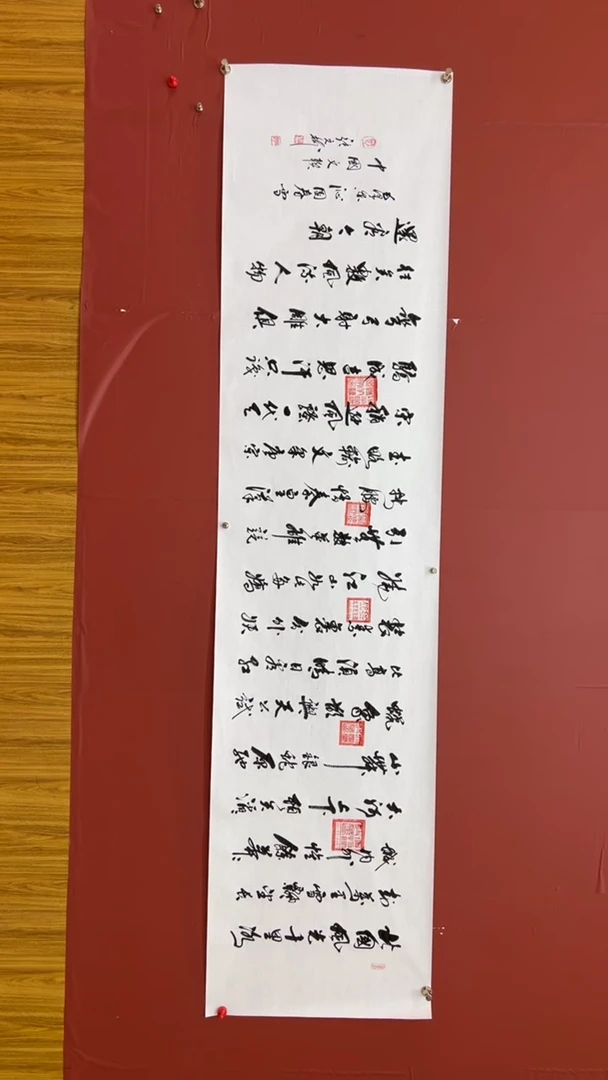 北國風光千里冰
封萬里雪飄望長
城內外惟餘莽莽
大河上下頓失滔滔
山舞銀蛇原馳
蠟象欲與天公試
比高須晴日看紅
裝素裹分外妖
嬈江山如此多嬌
引無數英雄競
折腰惜秦皇漢
武略輸文采唐宗
宋稍遜風騷一代天
驕成吉思汗只識
彎弓射大雕俱
往矣數風流人物
還看今朝
毛澤東沁園春雪